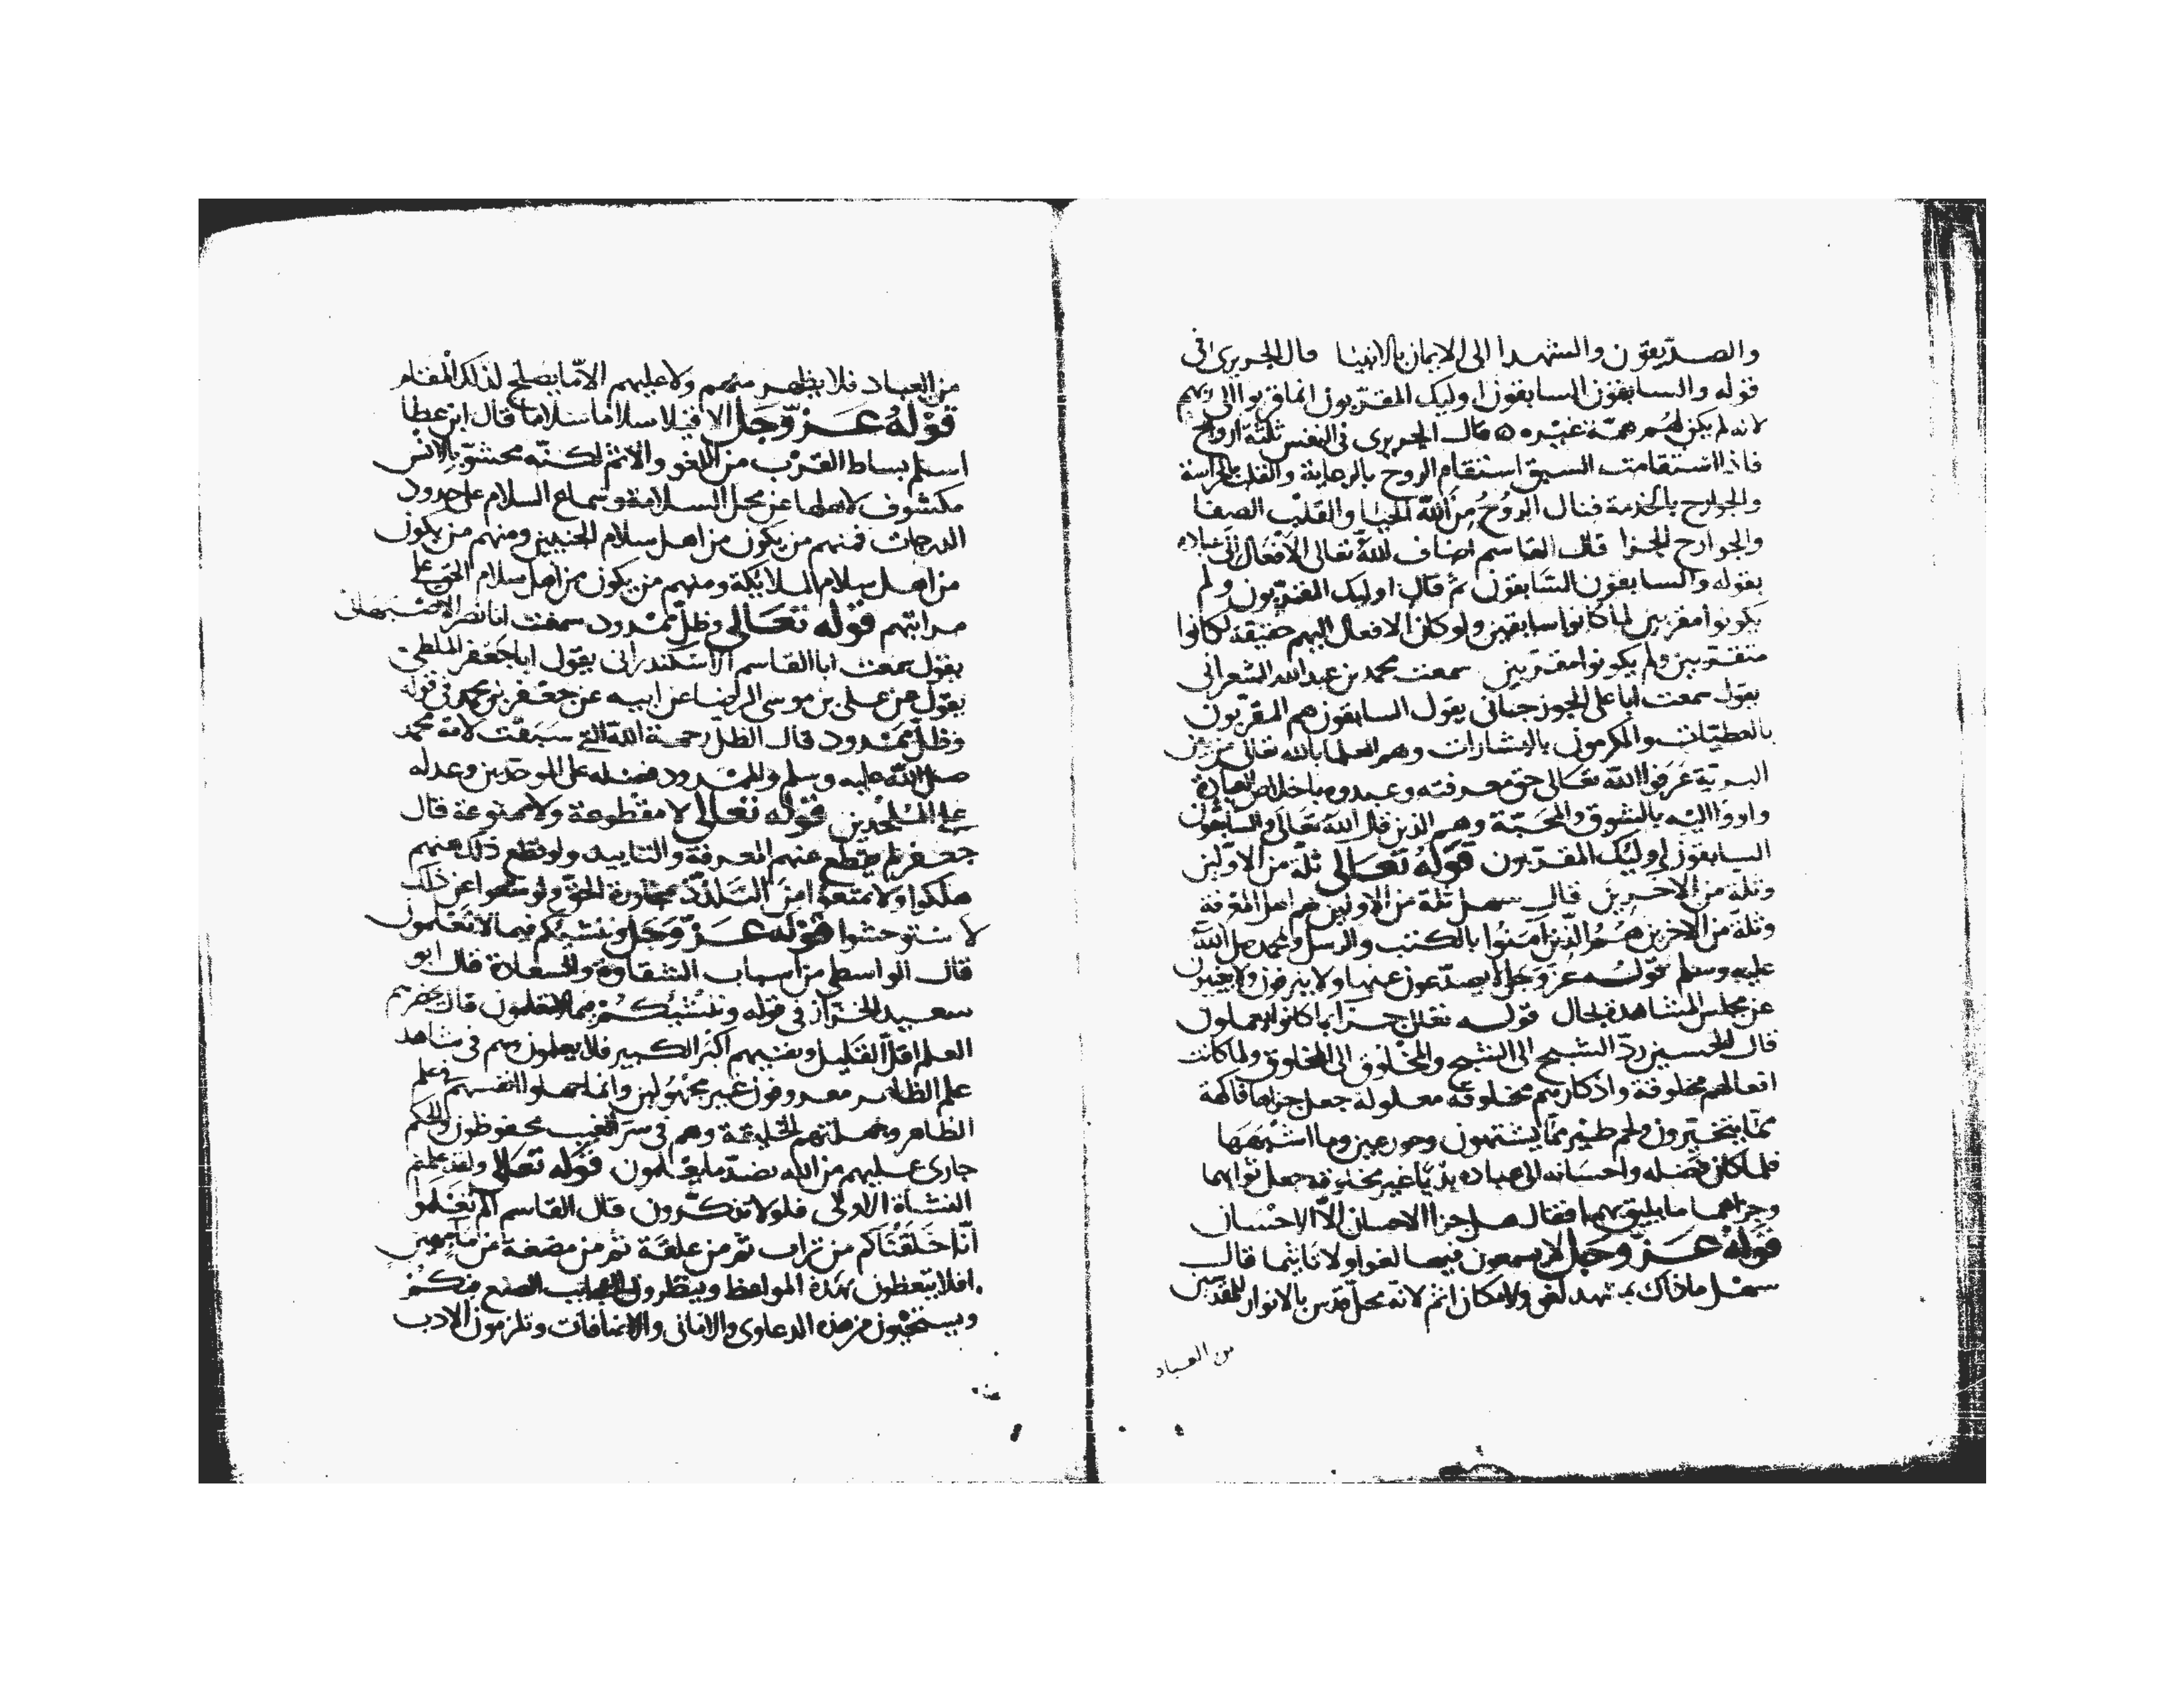 والصديقون والشهدا الى الايمان بالانبيا قال الجريرى فى
قوله والسابقون السابقون اوليك المقربون انما قربوا الى ربهم
لانه لم يكن لهم همة غيره ه قال الجريرى فى النفس ثلثة ارواح
فاذا استقامت السبق استقام الروح بالرعاية والقلب بالحراسة
والجوارح بالخدمة فنال الروح من الله الحيا والقلب الصفا
والجوارح الجزا قال القاسم اضاف الله تعالى الافعال الى عباده
بقوله والسابقون السابقون ثم قال اوليك المقربون ولم
يكونوا مقربين لما كانوا سابقين ولو كان الافعال اليهم حقيقة لكانوا
متقربين ولم يكونوا مقربين سمعت محمد بن عبد الله الشعرانى
يقول سمعت ابا على الجوزجانى يقول السابقون هم المقربون
بالعطيات والمكرمون بالبشارات وهم العلما بالله تعالى من بين
البرية عرفوا الله تعالى حق معرفته وعبدوه باخلاص العبادة
واووا اليه بالشوق والمحبة وهم الذين قال الله تعالى والسابقون
السابقون اوليك المقربون قوله تعالى ثلة من الاولين
وثلة من الاخرين قال سهل ثلة من الاولين هم اهل المعرفة
وثلة من الاخرين هم الذين امنوا بالكتب والرسل ومحمد صلى الله
عليه وسلم قوله عز وجل لا يصدعون عنها ولا ينزفون ولا يغيبون
عن مجلس المشاهدة بحال قوله تعالى جزا بما كانوا يعملون
قال الحسين رد الشبح الى الشبح والمخلوق الى المخلوق ولما كانت
افعالهم مخلوقة واذكارهم مخلوقة معلولة جعل جزاها فاكهة
مما يتخيرون ولحم طير مما يشتهون وحور عين وما اشبهها
فلما كان فضله واحسانه الى عباده بديا غير مخلوقة جعل ثوابهما
وجزاهما ما يليق بهما فقال هل جزا الاحسان الا الاحسان
قوله عز وجل لا يسمعون فيها لغوا ولا تاثيما قال
سهل ما ذاك بمشهد لغو ولا مكان اثم لانه محل قدس بالانوار للمقدسين
من العباد
من العباد فلا يظهر منهم ولا عليهم الا ما يصلح لذلك المقام
قوله عز وجل الا قيلا سلاما سلاما قال ابن عطا
اسلم بساط القرب من اللغو والاثم لكنه محشو بالانس
مكشوف لاهلها عن محل السلامة وسماع السلام على حدود
الدرجات فمنهم من يكون من اهل سلام الجنيين ومنهم من يكون
من اهل سلام الملايكة ومنهم من يكون من اهل سلام الحق على
مراتبهم قوله تعالى وظل ممدود سمعت ابا نصر الاصبهانى
يقول سمعت ابا القاسم الاسكندرانى يقول ابا جعفر الملطى
يقول عن على بن موسى الرضا عن ابيه عن جعفر بن محمد فى قوله
وظل ممدود قال الظل رحمة الله التى سبقت لامة محمد
صلى الله عليه وسلم والممدود فضله على الموحدين وعدله
على الملحدين قوله تعالى لا مقطوعة ولا ممنوعة قال
جعفر لم يقطع عنهم المعرفة والتاييد ولو قطع ذلك عنهم
هلكوا ولا منعوا من التلذذ بمجاورة الحق ولو منعوا عن ذلك
لا ستوحشوا قوله عز وجل وننشيكم فيما لا تعلمون
قال الواسطى من اسباب الشقاوة والسعادة قال ابو
سعيد الخراز فى قوله وننشيكم فيما لا تعلمون قال يخفرهم
العلم اقل القليل ويغنيهم اكبر الكبير فلا يعلمون وهم فى شاهد
علم الظاهر معروفون غير مجهولين وانما جهلوا انفسهم وعلم
الظاهر وجهلتهم الخليقة وهم فى سر الغيب محفوظون والحكم
جارى عليهم من الله بضد ما يعلمون قوله تعالى ولقد علمتم
النشاة الاولى فلولا تذكرون قال القاسم الم تعلموا
انا خلقناكم من تراب ثم من علقة ثم من مضغة من ما مهين
افلا يتعظون بهذه المواعظ وينظرون الى عجايب الصنع فيكم
ويستحيون من هذه الدعاوى والامانى والاضافات وتلزمون الادب